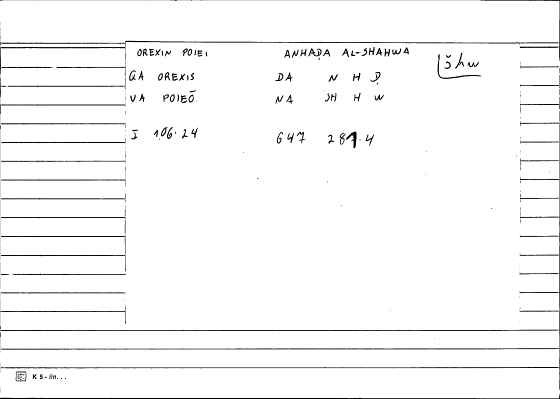 OREXIN POIEI ANHAḌA AL-SHAHWA šhw
GA OREXIS DA N H Ḍ
VA POIEŌ NA SH H W
I 106.24 647 281.4
K 5 - lin...